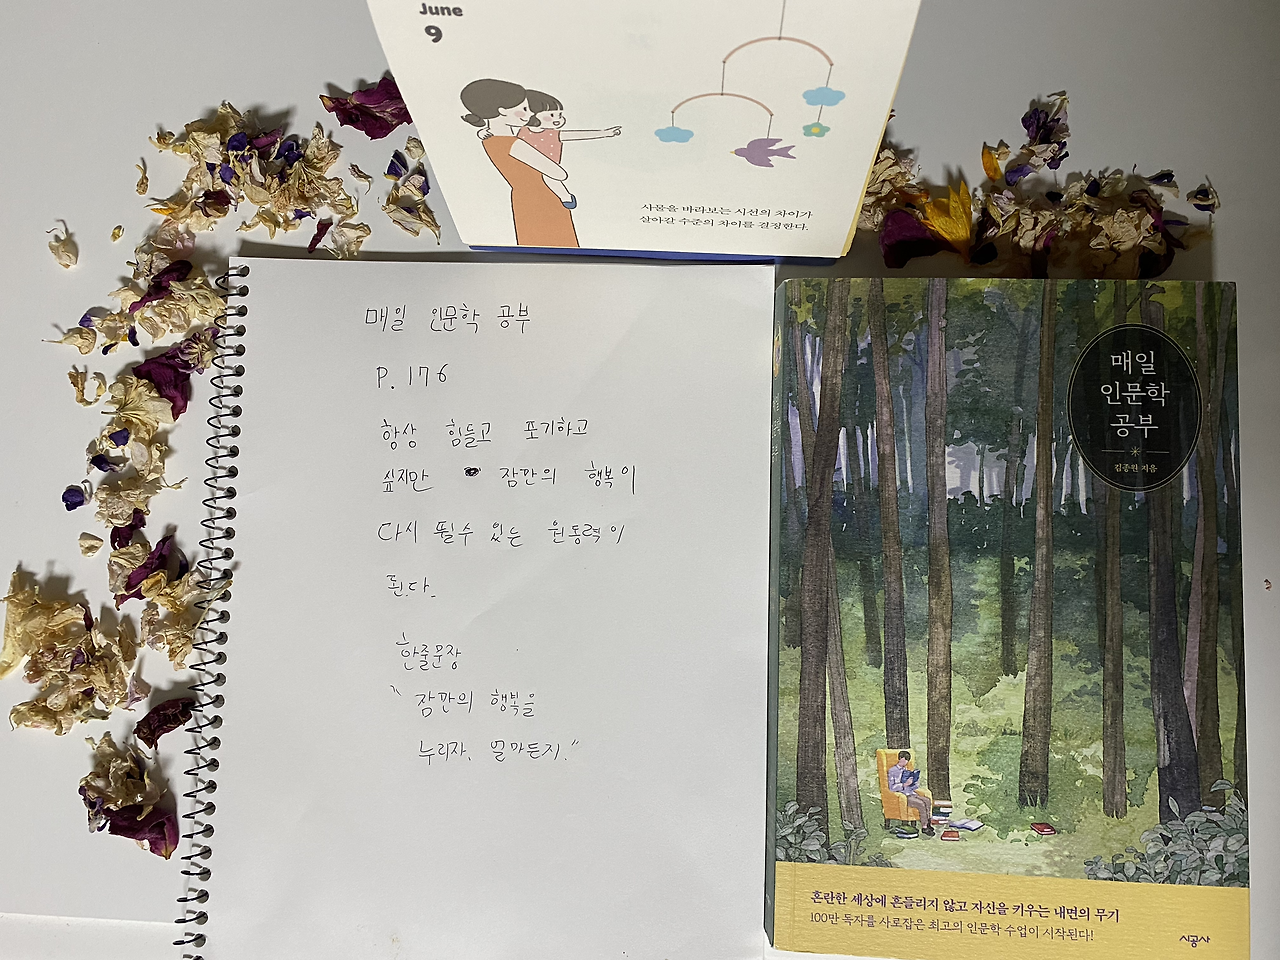 June
9
사물을 바라보는 시선의 차이가
살아갈 수준의 차이를 결정한다.
매일 인문학 공부
P. 176
항상 힘들고 포기하고
싶지만 잠깐의 행복이
다시 뛸수 있는 원동력이
된다.
한줄문장
"잠깐의 행복을
누리자. 얼마든지."
매일
인문학
공부
김종원 지음
혼란한 세상에 흔들리지 않고 자신을 키우는 내면의 무기
100만 독자를 사로잡은 최고의 인문학 수업이 시작된다!
시공사